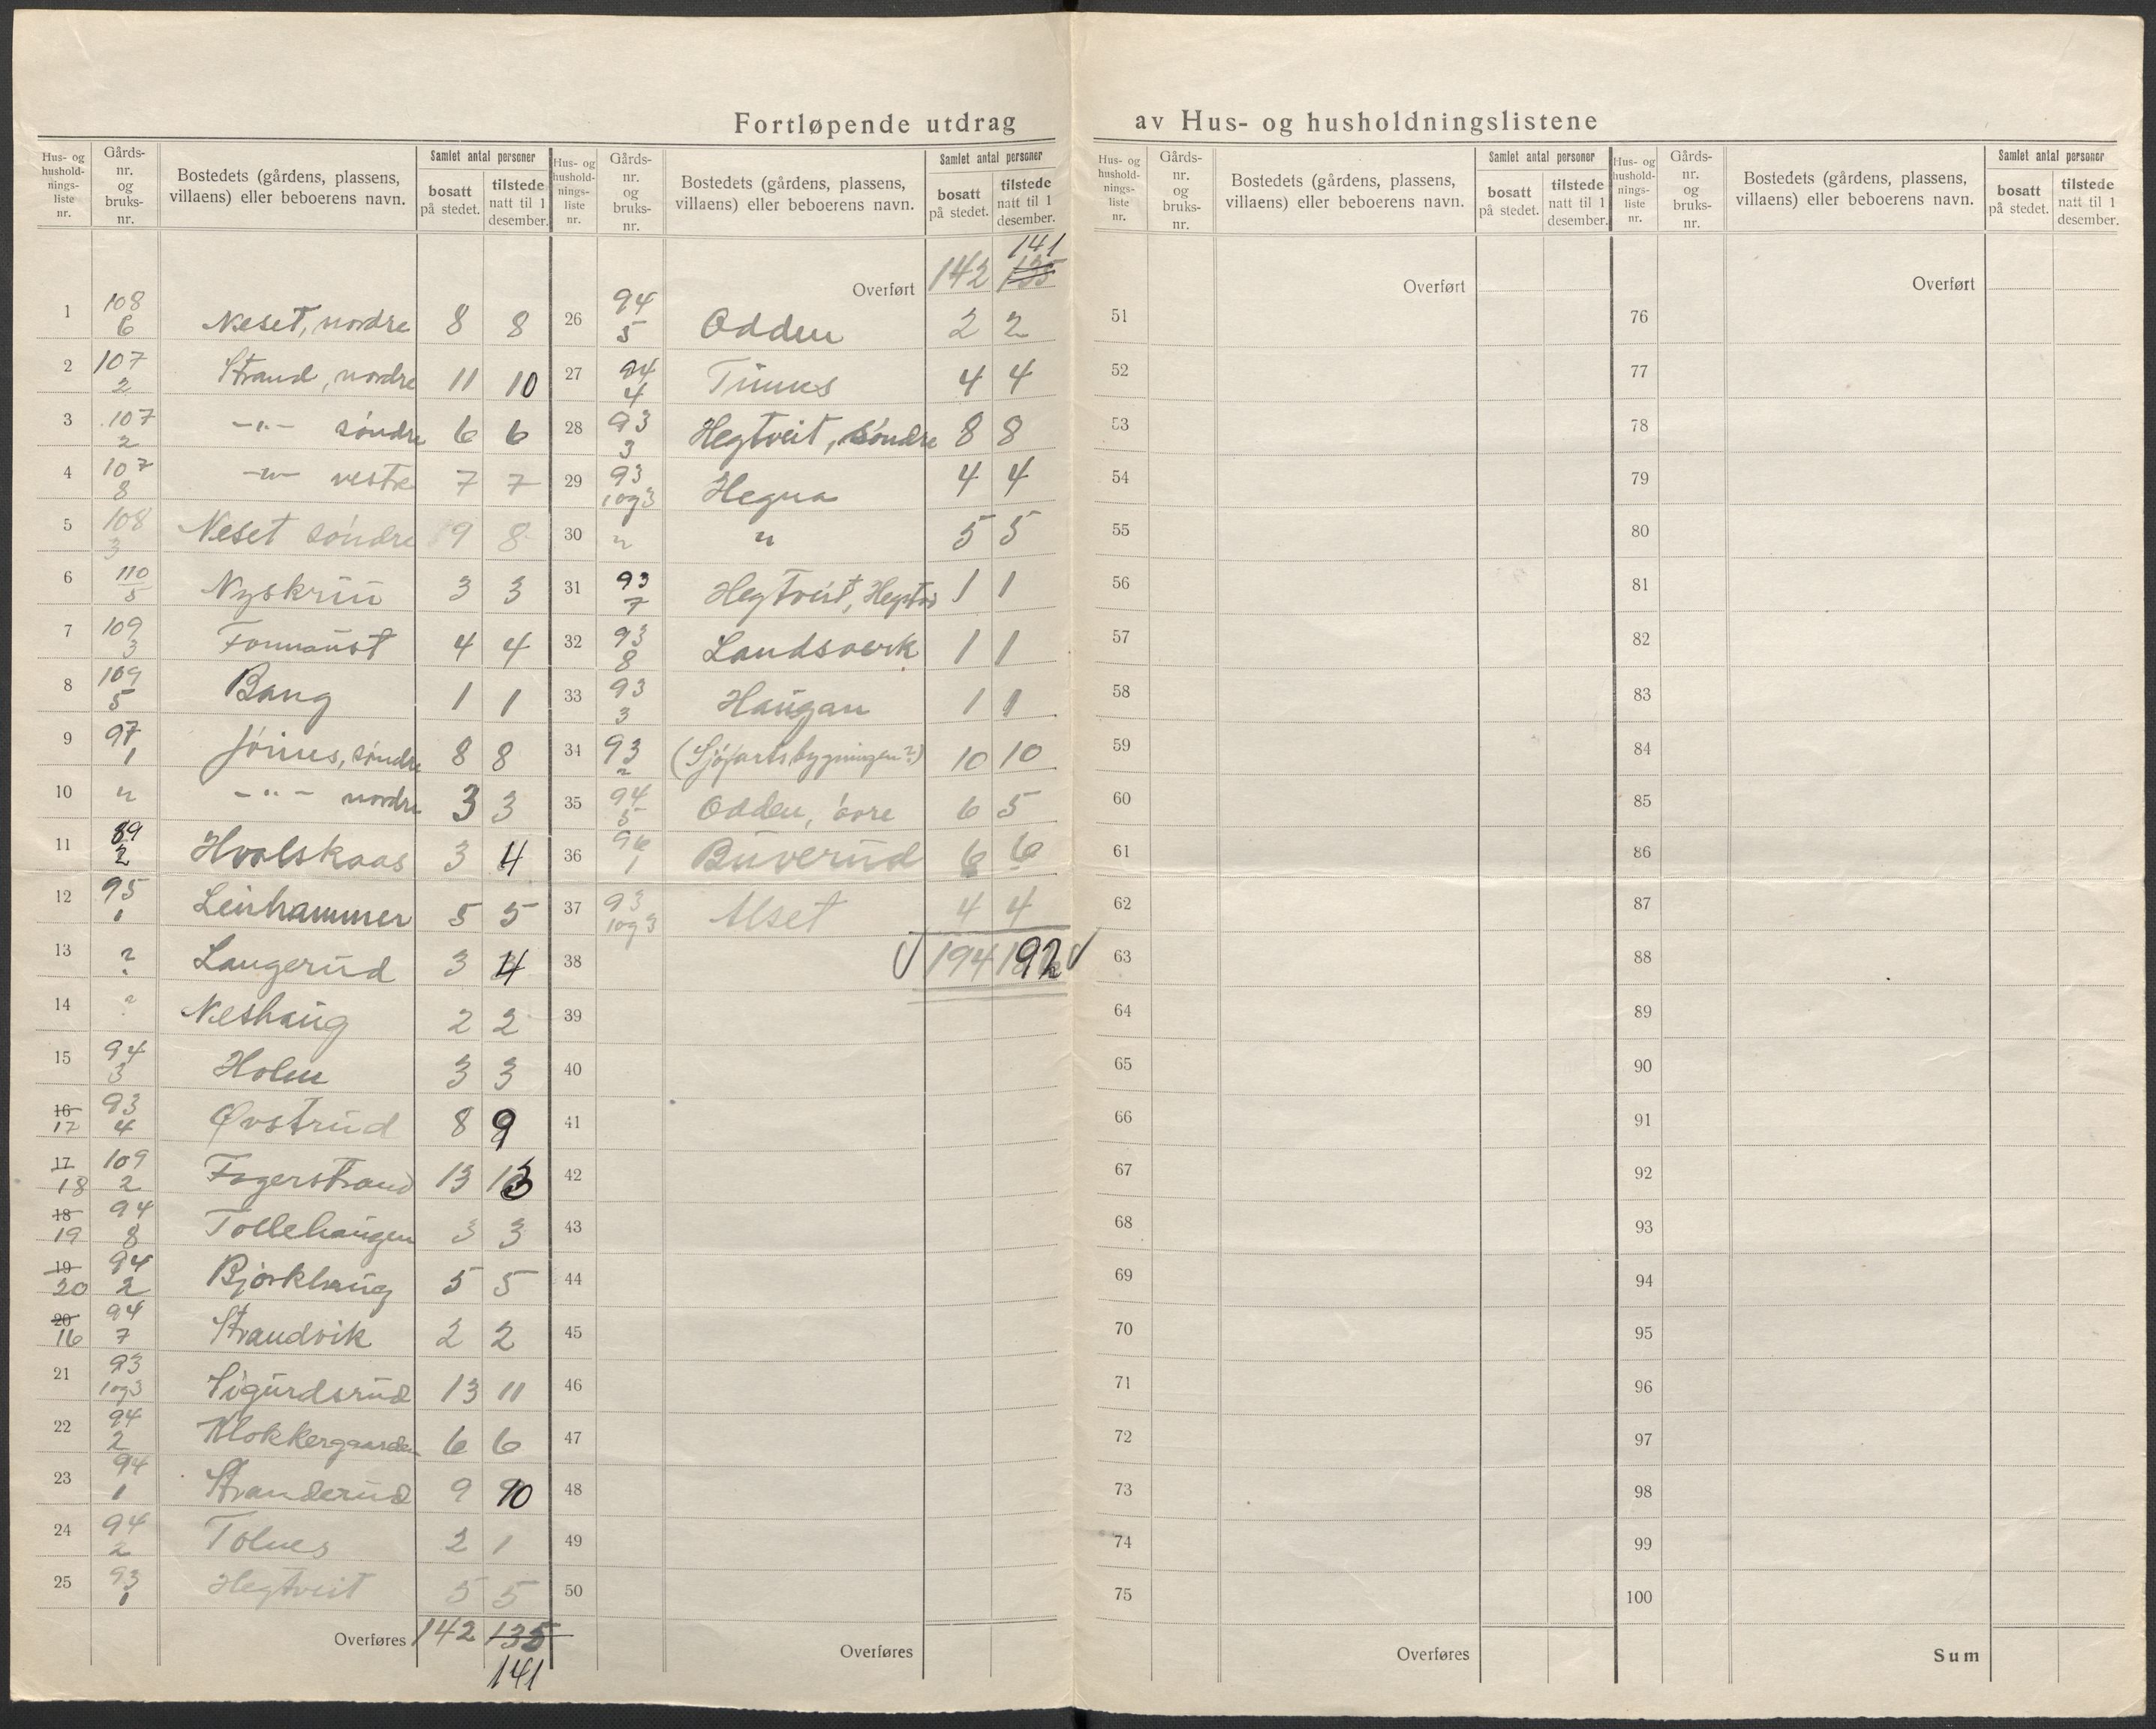 Fortløpende utdrag av Hus- og husholdningslistene
Hus- og hushold-nings-liste nr.
Gårds-nr. og bruks-nr.
Bostedets (gårdens, plassens, villaens) eller beboerens navn.
Samlet antal personer
bosatt på stedet.
tilstede natt til 1 desember.
1 108/6 Neset, nordre 8 8
2 107/2 Strand, nordre 11 10
3 107/2 -"- søndre 6 6
4 107/8 -"- vestre 7 7
5 108/3 Neset søndre 9 8
6 110/5 Nyskrin 3 3
7 109/3 Fornaust 4 4
8 109/5 Bang 1 1
9 97/1 Jørnes, søndre 8 8
10 " -"- nordre 3 3
11 89/2 Hvalskaas 3 4
12 95/1 Leirhammer 5 5
13 ? Langerud 3 4
14 ? Neshaug 2 2
15 94/3 Holm 3 3
16 17 93/4 Øvstrud 8 9
17 18 109/2 Fagerstrand 13 13
18 19 94/8 Tollehaugen 3 3
19 20 94/2 Bjørkhaug 5 5
20 16 94/7 Strandvik 2 2
21 93/1og3 Sigurdsrud 13 11
22 94/2 Klokkergaarden 6 6
23 94/1 Stranderud 9 10
24 94/2 Tolnes 2 1
25 93/1 Hegtveit 5 5
Overføres 142 135
141
Hus- og hushold-nings-liste nr.
Gårds-nr. og bruks-nr.
Bostedets (gårdens, plassens, villaens) eller beboerens navn.
Samlet antal personer
bosatt på stedet.
tilstede natt til 1 desember.
141
Overført 142 135
26 94/5 Odden 2 2
27 94/4 Timnes 4 4
28 93/3 Hegtveit, søndre 8 8
29 93/1og3 Hegna 4 4
30 " " 5 5
31 93/7 Hegtveit, 1 1
32 93/8 Landsverk 1 1
33 93/3 Haugan 1 1
34 93/2 (Sjøfartsbygningen?) 10 10
35 94/5 Odden, øvre 6 5
36 96/1 Buverud 6 6
37 93/1og3 Alset 4 4
38 194 192
39
40
41
42
43
44
45
46
47
48
49
50
Overføres
Hus- og hushold-nings-liste nr.
Gårds-nr. og bruks-nr.
Bostedets (gårdens, plassens, villaens) eller beboerens navn.
Samlet antal personer
bosatt på stedet.
tilstede natt til 1 desember.
Overført
51
52
53
54
55
56
57
58
59
60
61
62
63
64
65
66
67
68
69
70
71
72
73
74
75
Overføres
Hus- og hushold-nings-liste nr.
Gårds-nr. og bruks-nr.
Bostedets (gårdens, plassens, villaens) eller beboerens navn.
Samlet antal personer
bosatt på stedet.
tilstede natt til 1 desember.
Overført
76
77
78
79
80
81
82
83
84
85
86
87
88
89
90
91
92
93
94
95
96
97
98
99
100
Sum